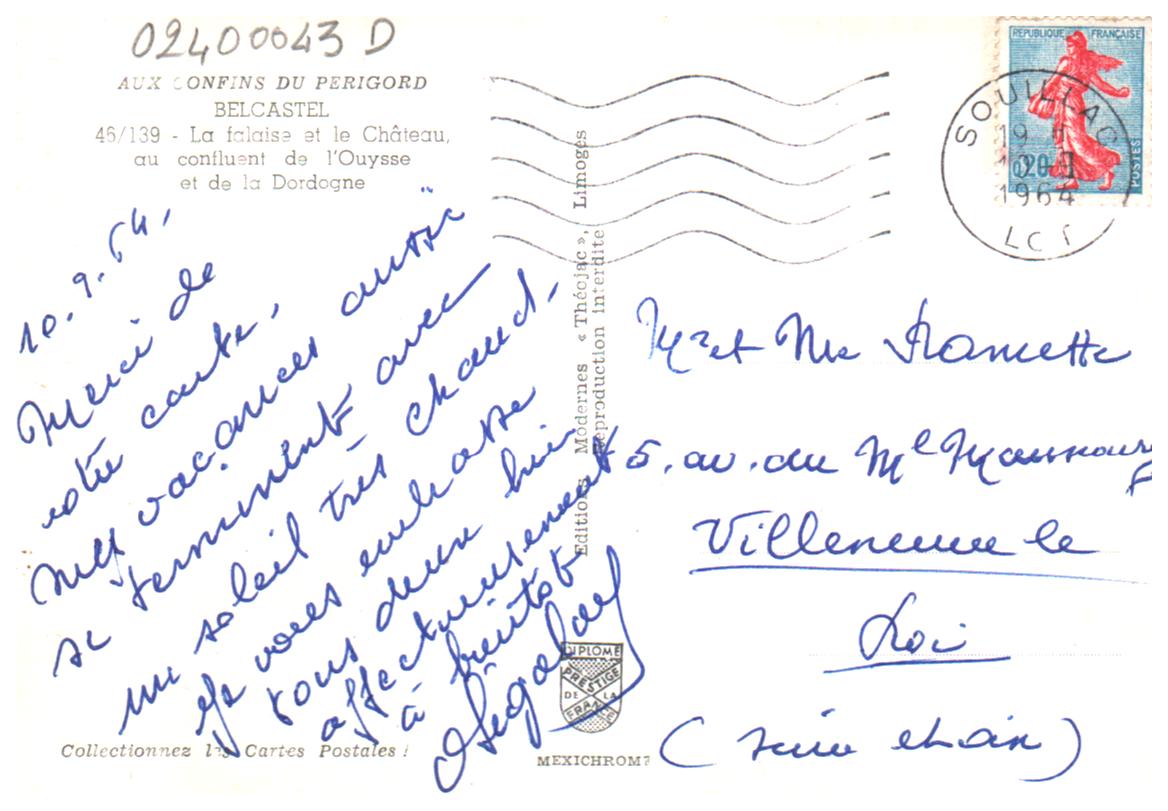 02400043 D
AUX CONFINS DU PERIGORD
BELCASTEL
46/139 - La falaise et le Château,
au confluent de l'Ouysse
et de la Dordogne
REPUBLIQUE FRANÇAISE
0,20
POSTES
SOUILLAC
19 H
10-9
1964
LOT
10.9.64.
Merci de
votre carte,
Mes vacances aussi
se terminent avec
un soleil très chaud.
Je vous embrasse
tous deux bien
affectueusement
à bientôt
Editions Modernes « Théojac », Limoges
Reproduction interdite
Mr et Me
5. av. du Ml Maunoury
Villeneuve le
Roi
(Seine et Oise)
DIPLOME
PRESTIGE
DE LA
FRANCE
MEXICHROME
Collectionnez les Cartes Postales !